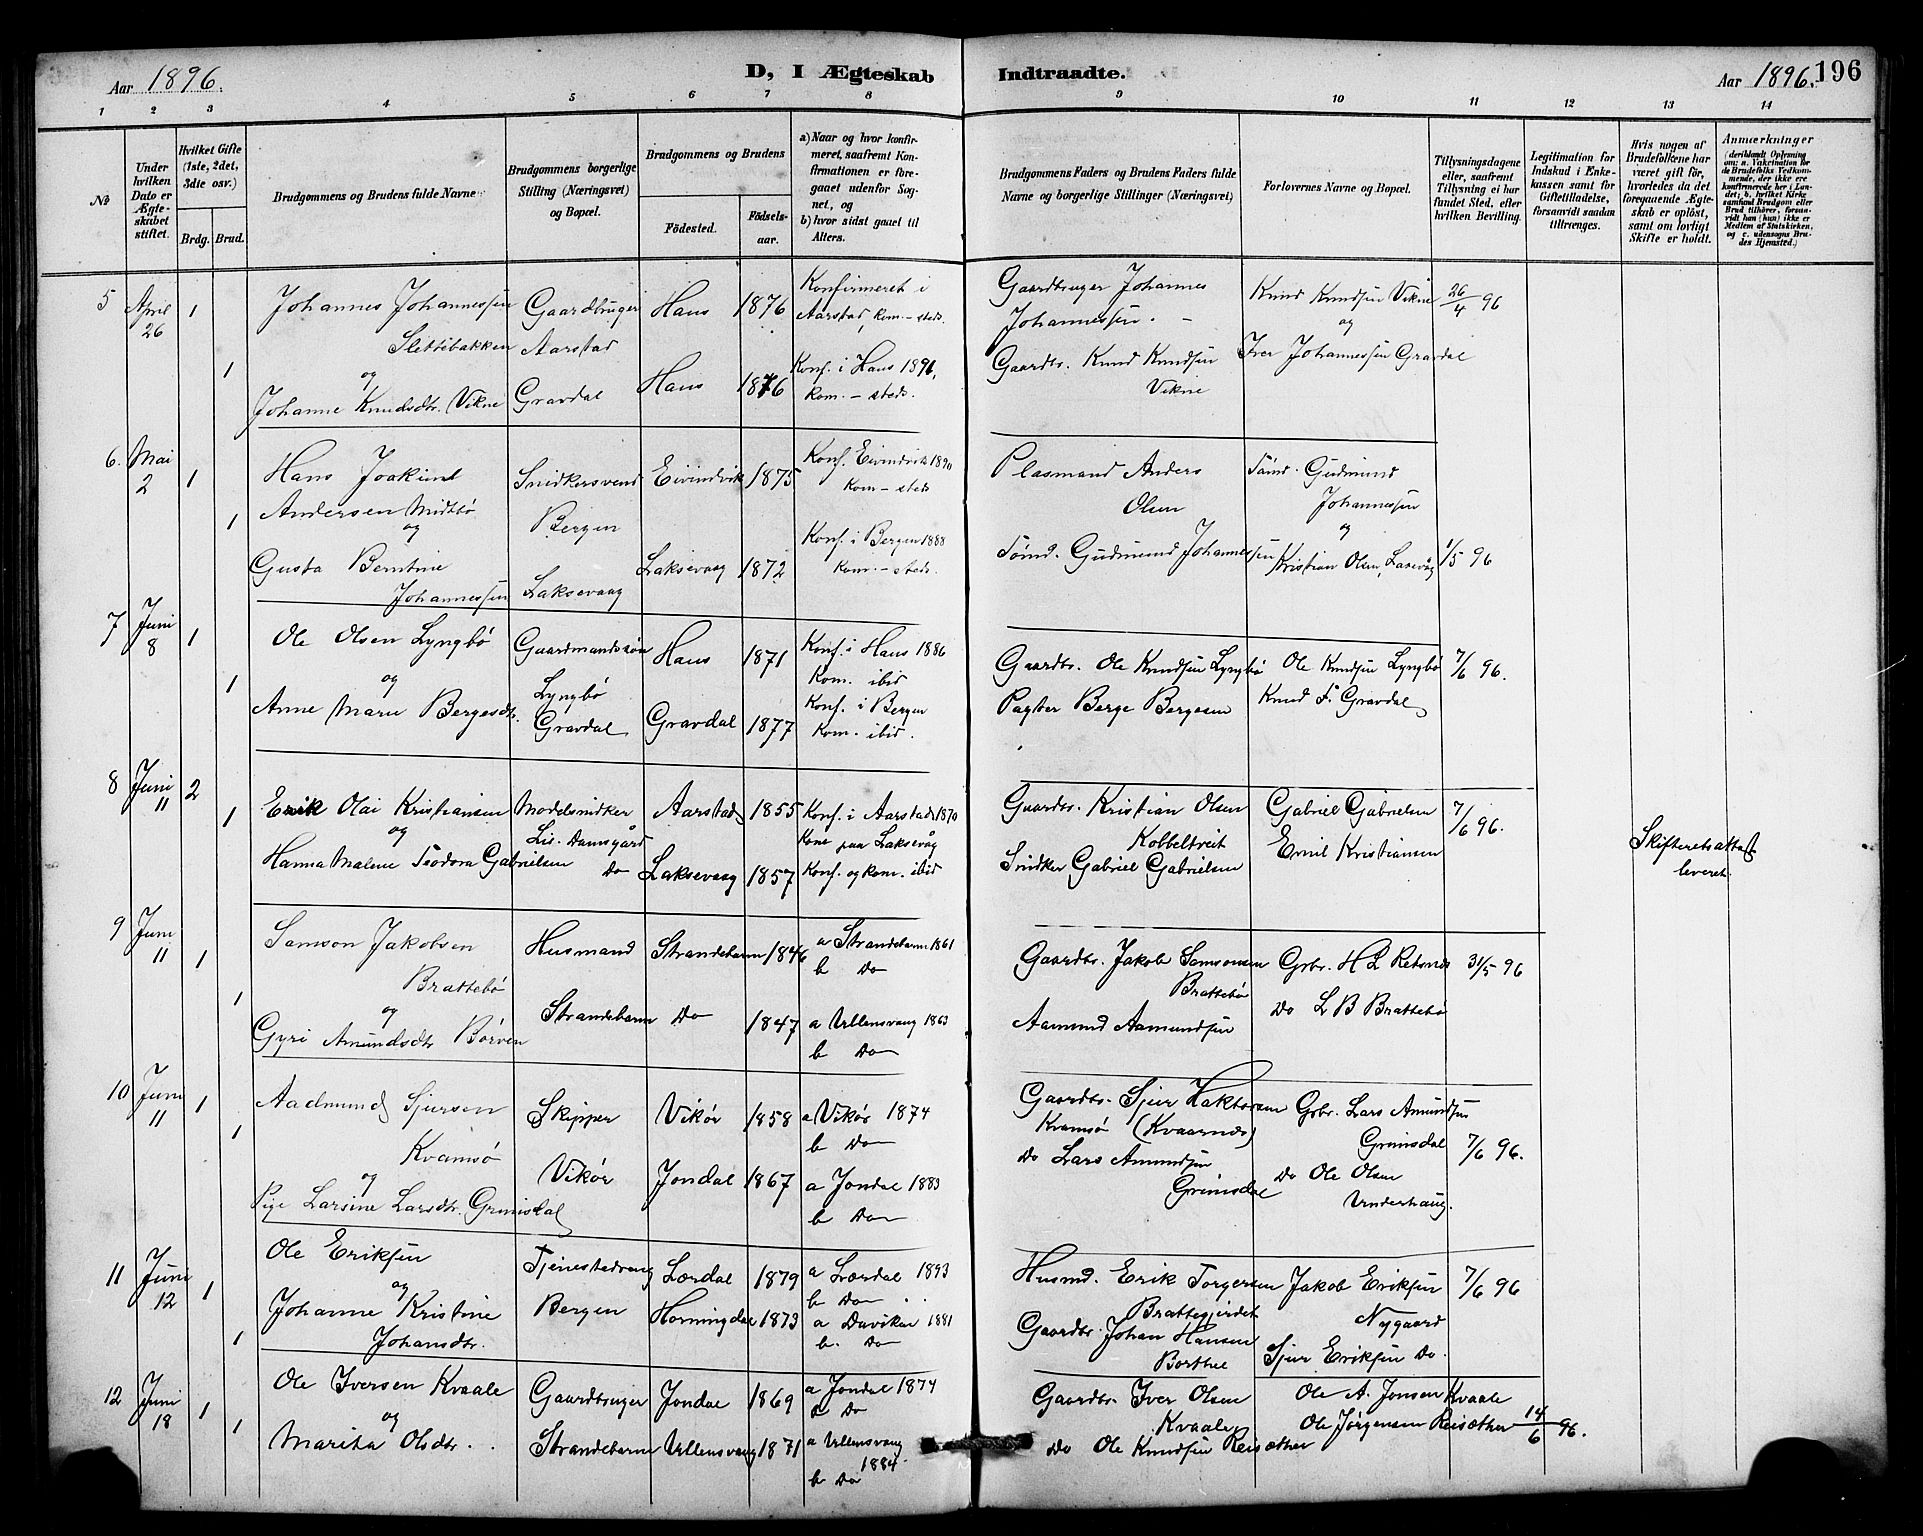 Aar 1896.
D, I Ægteskab
Indtraadte.
Aar 1896.
196
1 2 3 4 5 6 7 8 9 10 11 12 13 14
No
Under hvilken Dato er Ægteskabet stiftet.
Hvilket Gifte (1ste, 2det, 3die osv.)
Brdg. Brud.
Brudgommens og Brudens fulde Navne
Brudgommens borgerlige Stilling (Næringsvei) og Bopæl.
Brudgommens og Brudens
Födested.
Födselsaar.
a) Naar og hvor konfirmeret, saafremt Konfirmationen er foregaaet udenfor Sognet, og
b) hvor sidst gaaet til Alters.
Brudgommens Faders og Brudens Faders fulde Navne og borgerlige Stillinger (Næringsvei)
Forlovernes Navne og Bopæl.
Tillysningsdagene eller, saafremt Tillysning ei har fundet Sted, efter hvilken Bevilling.
Legitimation for Indskud i Enkekassen samt for Giftetilladelse, forsaavidt saadan tiltrænges.
Hvis nogen af Brudefolkene har været gift för, hvorledes da det foregaaende Ægteskab er oplöst, samt om lovligt Skifte er holdt.
Anmærkninger
(deriblandt Oplysning om: a. Vakcination for de Brudefolks Vedkommende, der ikke ere konfirmerede her i Landet; b. hvilket Kirkesamfund Brudgom eller Brud tilhörer, forsaavidt han (hun) ikke er Medlem af Statskirken, og c. udensogns Brudes Hjemsted.)
5 April 26 1 Johannes Johannessen Gaardbruger Haus 1876 Konfirmeret i
Slettebakken Aarstad Aarstad, kom. - steds.
1 og
Johanne Knudsdtr. Vikne Gravdal Haus 1876 Konf. i Haus 1891, kom. - steds.
Gaardbruger Johannes Johannessen. -
Knud Knudsen Vikne 26/4 96
og
Gaardbr. Knud Knudsen Vikne
Iver Johannessen Gravdal
6. Mai 2 1 Hans Joakim Snidkersvend Eivindvik 1875 Konf. Eivindvik 1890
Kom - steds
1 Andersen Midtbö Bergen
og
Gusta Berntine Johannessen Laksevaag Laksevaag 1872 Konf. i Bergen 1888
Kom. - steds.
Plasmand Anders Olsen
Tömd. Gudmund Johannessen
og
Tömd. Gudmund Johannessen Kristian Olsen, Laxevåg 1/5 96
7 Juni 8 1 Ole Olsen Lyngbö Gaardmandssön Haus 1871 Konf. i Haus 1886
og Lyngbö Kom. ibid
1 Anne Marie Bergesdtr. Gravdal Gravdal 1877 Konf. i Bergen
Kom. ibid.
Gaardbr. Ole Knudsen Lyngbö Ole Knudsen Lyngbö 7/6 96.
Pagter Berge Bergesen Knud F. Gravdal
8 Juni 11 2 Erik Olai Kristiansen Modelsnidker Aarstad 1855 Konf. i Aarstad 1870
1 og Lil. Damsgård Kone paa Laksevåg
Hanna Malene Teodora Gabrielsen Do Laksevaag 1857 Konf. og kom. ibid
Gaardbr. Kristian Olsen Kobbeltveit Gabriel Gabrielsen 7/6 96.
Snidker Gabriel Gabrielsen Emil Kristiansen
Skifteretsattest leveret.
9 Juni 11 1 Samson Jakobsen Husmand Strandebarm 1846 a Strandebarm 1861
Brattebö b Do
1 og
Gyri Amundsdtr Börven Strandebarm Do 1847 a Ullensvang 1863
b Do
Gaardbr. Jakob Samsonsen Brattebö Grbr. H L 31/5 96
Aamund Aamundsen Do L B Brattebö
10 Juni 11 1 Aadmund Sjursen Skipper Vikör 1858 a Vikör 1874
1 Kvamsö b Do
og
Pige Larsine Larsdtr. Grimsdal Vikör Jondal 1867 a Jondal 1883
b Do
Gaardbr. Sjur Kvamsö (Kvaarnes) Grbr. Lars Amundsen Grimsdal 7/6 96.
Do Lars Amundsen Grimsdal Do Ole Olsen Underhaug.
11 Juni 12 1 Ole Eriksen Tjenestedreng Lærdal 1879 a Lærdal 1893
og b Do
1 Johanne Kristine Johansdtr. Bergen Horningdal 1873 a Daviken 1881
b. Do
Husmd. Erik Torgersen Brattegjerdet Jakob Eriksen Nygaard 7/6 96
Gaardbr. Johan Hansen Sjur Eriksen Do.
12 Juni 18 1 Ole Iversen Kvaale Gaardbruger Jondal 1869 a Jondal 1874
1 og b Do
Marita Olsdtr. . . Strandebarm Ullensvang 1871 a Ullensvang 1884
b Do
Gaardbr. Iver Olsen Kvaale Ole A. Jonsen Kvaale
Do Ole Knudsen Reisæther Ole Jörgensen Reisæther 14/6 96.